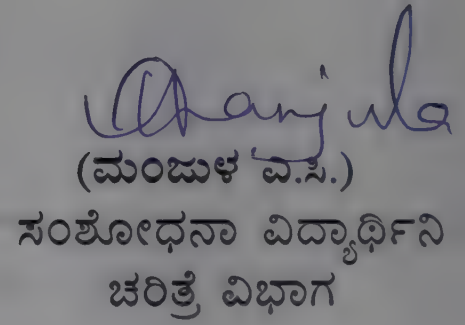 Manjula
(ಮಂಜುಳ ವಿ.ಸಿ.)
ಸಂಶೋಧನಾ ವಿದ್ಯಾರ್ಥಿನಿ
ಚರಿತ್ರೆ ವಿಭಾಗ